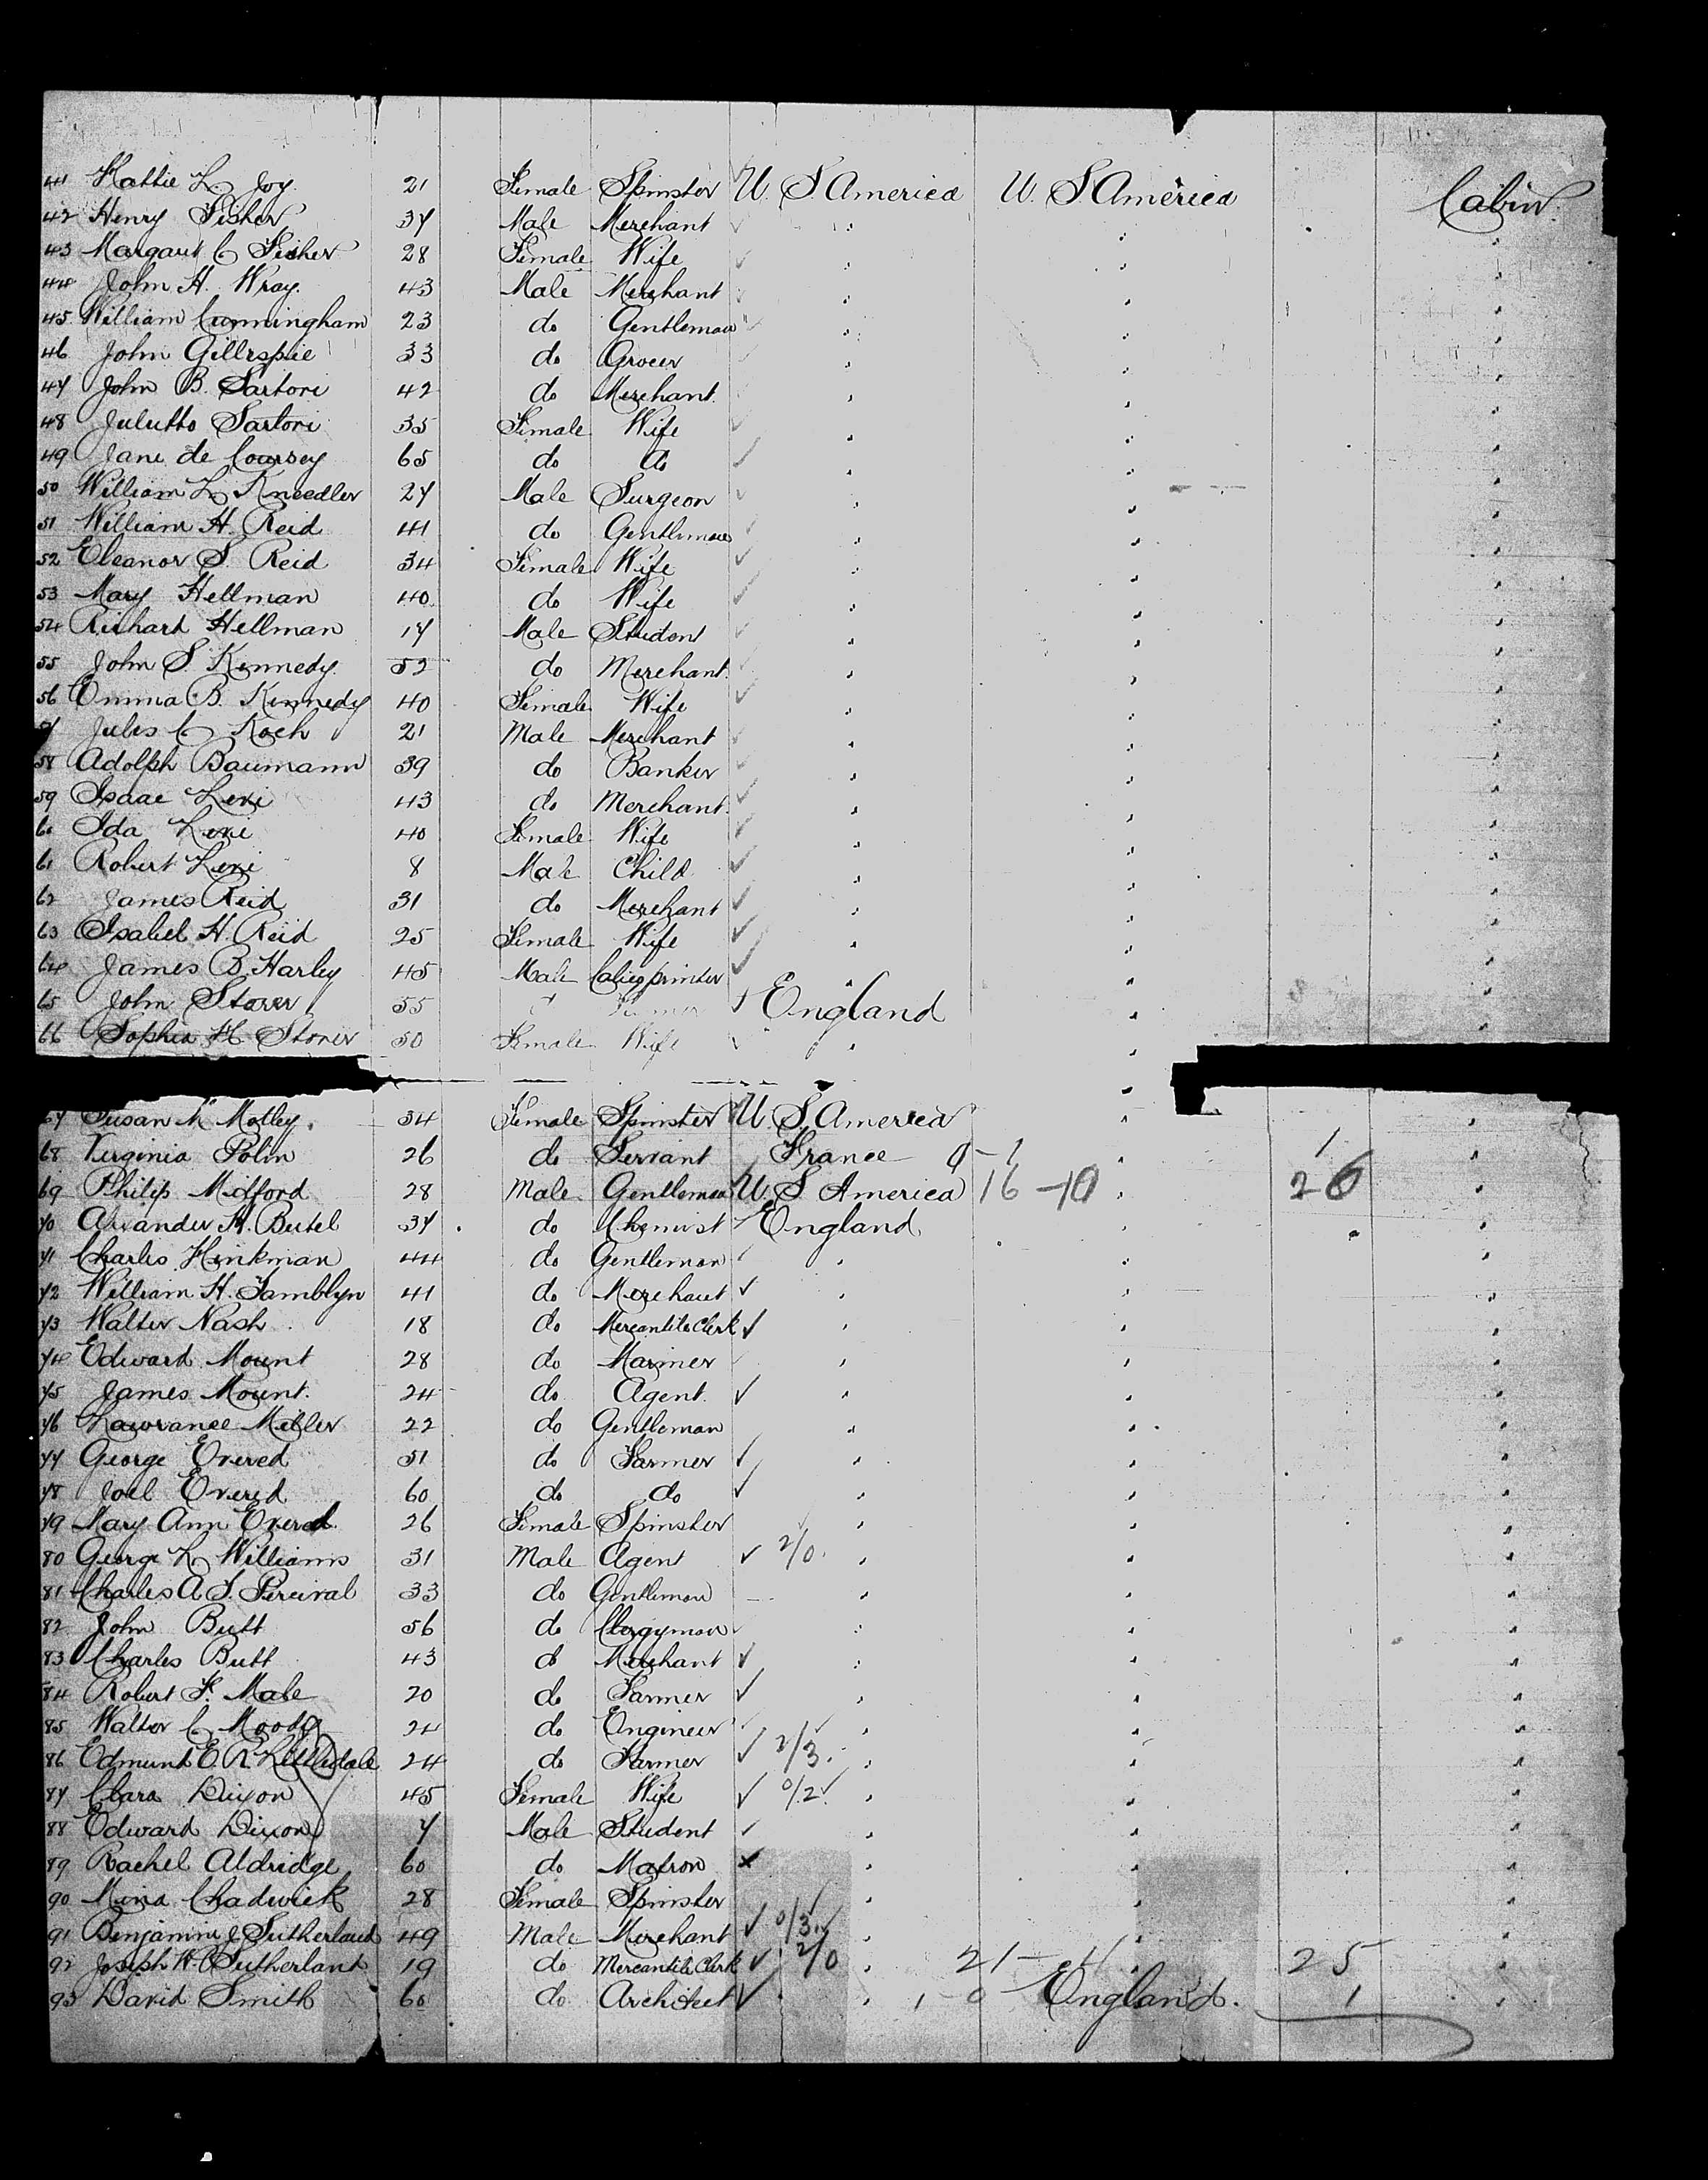 41 Hattie L. Joy. 21 Female Spinster U. S America U. S America Cabin.
42 Henry Fisher 37 Male Merchant
43 Margaret C Fisher 28 Female Wife
44 John H. Wray. 43 Male Merchant
45 William Cunningham 23 do Gentleman
46 John Gillespie 33 do Grocer
47 John B. Sartori 42 do Merchant.
48 Sartori 35 Female Wife
49 Jane de Coursey 65 do do
50 William L Kneedler 27 Male Surgeon
51 William H. Reid 41 do Gentleman
52 Eleanor S. Reid 34 Female Wife
53 Mary Hellman 40 do Wife
54 Richard Hellman 17 Male Student
55 John S. Kennedy. 52 do Merchant.
56 Emma B. Kennedy 40 Female Wife
57 Jules C Koch 21 Male Merchant
58 Adolph Baumann 39 do Banker
59 Isaac Levi 43 do Merchant.
60 Ida Levi 40 Female Wife
61 Robert Levi 8 Male Child
62 James Reid 31 do Merchant
63 Isabel H. Reid 25 Female Wife
64 James B. Harley 45 Male Calico printer
65 John Storer 55 England
66 Sophia H. Storer 50 Female Wife
67 Susan M Motley. 34 Female Spinster U. S. America
68 Virginia Polin 26 do Servant France 0-1 1
69 Philip Midford 28 Male Gentleman U. S. America 16-10 26
70 37 do Chemist England
71 Charles Hinkman 44 do Gentleman
72 William H. Tamblyn 41 do Merchant
73 Walter Nash 18 do Mercantile Clerk
74 Edward Mount 28 do Mariner
75 James Mount. 24 do Agent.
76 Lawrance Miller 22 do Gentleman
77 George Evered 51 do Farmer
78 Joel Evered 60 do do
79 Mary Ann Evered. 26 Female Spinster
80 George L Williams 31 Male Agent 2/0.
81 Charles A. S. Percival 33 do Gentleman
82 John Butt 56 do Clergyman
83 Charles Butt 43 do Merchant
84 Robert F. Male 20 do Farmer
85 Walter C Moody 24 do Engineer
86 Edmund E. R. Littledale 24 do Farmer 2/3.
87 Clara Dixon 45 Female Wife 0/2
88 Edward Dixon 7 Male Student
89 Rachel Aldridge 60 do Matron
90 Mina Chadwick 28 Female Spinster
91 Benjamin J Sutherland 49 Male Merchant 0/3.
92 Joseph W. Sutherland 19 do Mercantile Clerk 2/0 21-4 25
93 David Smith 60 do Architect 1-0 England. 1